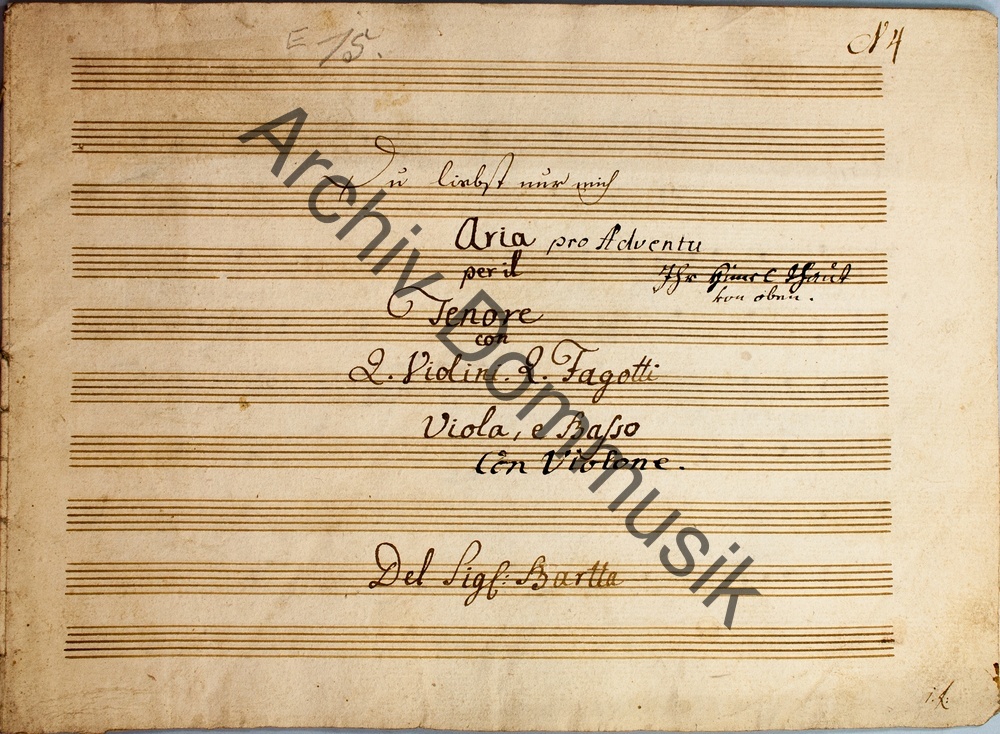 E 15.
N 4
Du liebst nur mich
Aria pro Adventu
per il
Ihr Himel thaut
von oben.
Tenore
con
2. Violini. 2. Fagotti
Viola, e Basso
Con Violone.
Del Sigl: Bartta
Archiv Dommusik